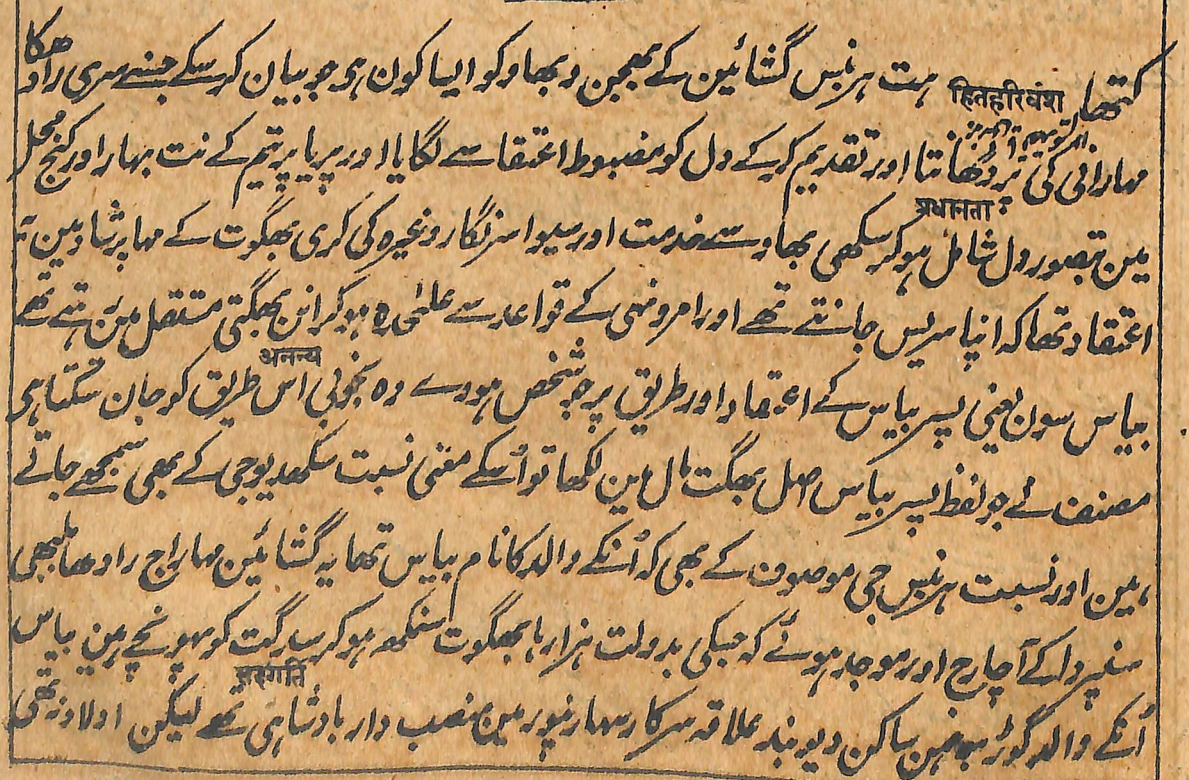 کتھا ہت ہربنس گشائین کے بھجن و بھاو کو ایسا کون ہی جو بیان کر سکے جسنے سری رادھکا
हितहरिवंश
مہارانی کی پردھانتا اور تقدیم کر کے دل کو مضبوط اعتقا سے لگایا اور پریا پریتم کے نت بہار اور کنج محل
प्रधानता
مین تصور دل شامل ہو کر سکھی بھاو سے خدمت اور سیوا سرنگار وغیرہ کی کری بھگوت کے مہا پرشاد مین یہ
اعتقاد تھا کہ اپنا سربس جانتے تھے اور امر و نہی کے قواعد سے علٰحدہ ہو کر انن بھگتی مستقل مین رہتے تھے
अनन्य
بیاس سون یعنی پسر بیاس کے اعتقاد اور طریق پر جو شخص ہووے وہ بخوبی اس طریق کو جان سکتا ہی
مصنف نے جو لفظ پسر بیاس اصل بھگت مال مین لکھا تو اُسکے معنی نسبت سکھدیو جی کے بھی سمجھے جاتے
ہین اور نسبت ہربنس جی موصوف کے بھی کہ اُنکے والد کا نام بیاس تھا یہ گشائین مہاراج رادھا بلبھی
سنپردا کے آچارج اور موجد ہوئے کہ جسکی بدولت ہزارہا بھگوت سنمکھ ہو کر سدگت کو پہونچے ہین بیاس
सदगति
اُنکے والد گوڑ برہمن ساکن دیوبند علاقہ سرکار سہارنپور مین منصب دار بادشاہی تھے لیکن اولاد نہ تھی